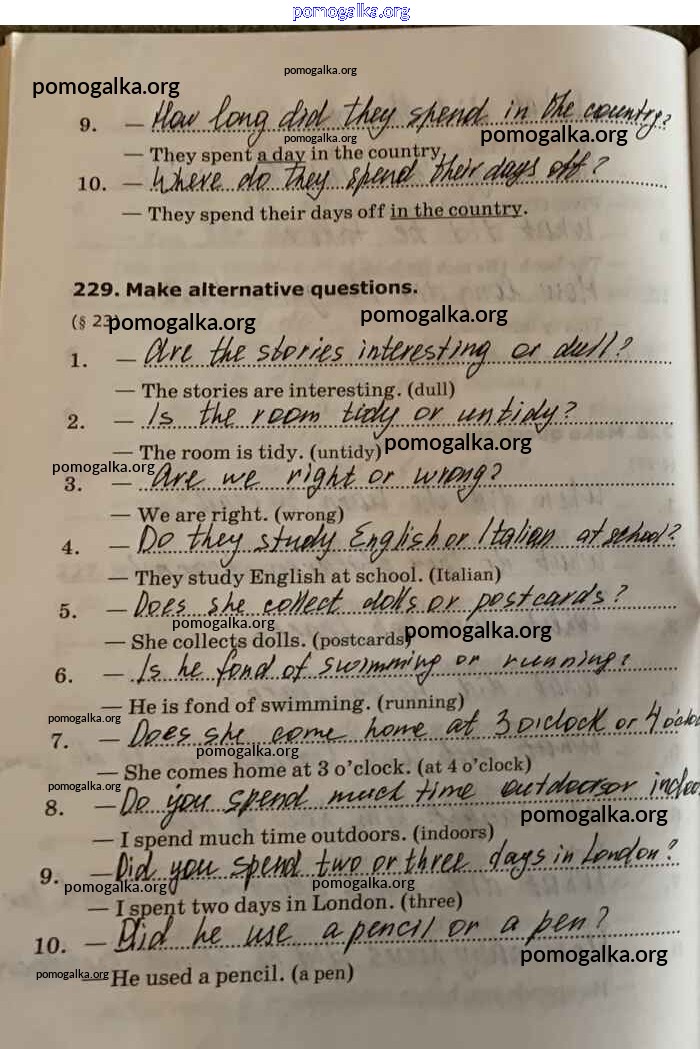 pomogalka.org
pomogalka.org
pomogalka.org
9. — How long did they spend in the country?
pomogalka.org
pomogalka.org
— They spent a day in the country.
10. — Where do they spend their days off?
— They spend their days off in the country.
229. Make alternative questions.
(§ 23)
pomogalka.org
pomogalka.org
1. — Are the stories interesting or dull?
— The stories are interesting. (dull)
2. — Is the room tidy or untidy?
— The room is tidy. (untidy)
pomogalka.org
pomogalka.org
3. — Are we right or wrong?
— We are right. (wrong)
4. — Do they study English or Italian at school?
— They study English at school. (Italian)
5. — Does she collect dolls or postcards?
pomogalka.org
— She collects dolls. (postcards)
pomogalka.org
6. — Is he fond of swimming or running?
— He is fond of swimming. (running)
pomogalka.org
7. — Does she come home at 3 o'clock or 4 o'clo
pomogalka.org
— She comes home at 3 o'clock. (at 4 o'clock)
pomogalka.org
8. — Do you spend much time outdoors or indoo
pomogalka.org
— I spend much time outdoors. (indoors)
9. — Did you spend two or three days in London?
pomogalka.org
pomogalka.org
— I spent two days in London. (three)
10. — Did he use a pencil or a pen?
pomogalka.org
pomogalka.org
— He used a pencil. (a pen)